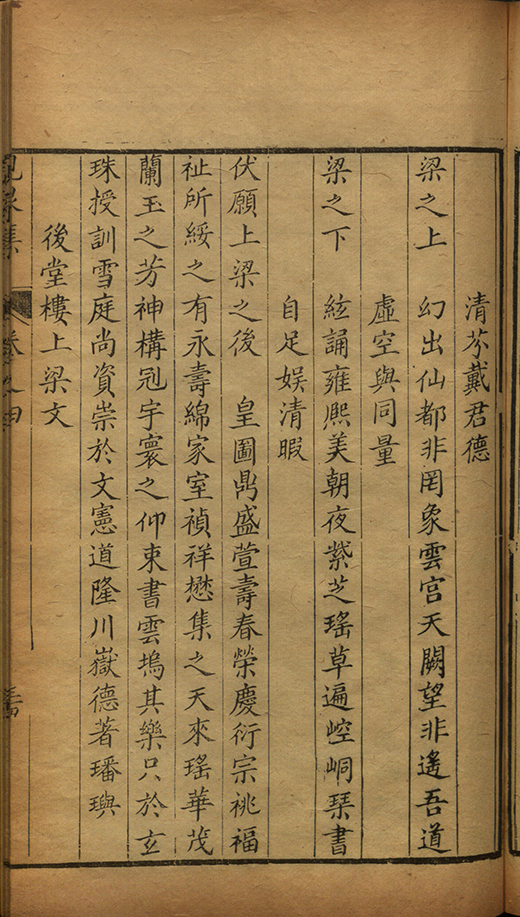 清芬戴君德
梁之上　幻出仙都非罔象雲宮天闕望非遙吾道
虛空與同量
梁之下　絃誦雍熙美朝夜紫芝瑤草遍崆峒琴書
自足娛清暇
伏願上梁之後　皇圖鼎盛萱壽春榮慶衍宗祧福
祉所綏之有永壽綿家室禎祥懋集之天來瑤華茂
蘭玉之芳神構冠宇寰之仰束書雲塢其樂只於玄
珠授訓雪庭尚資崇於文憲道隆川嶽德著璠璵
後堂樓上梁文
集　卷之四